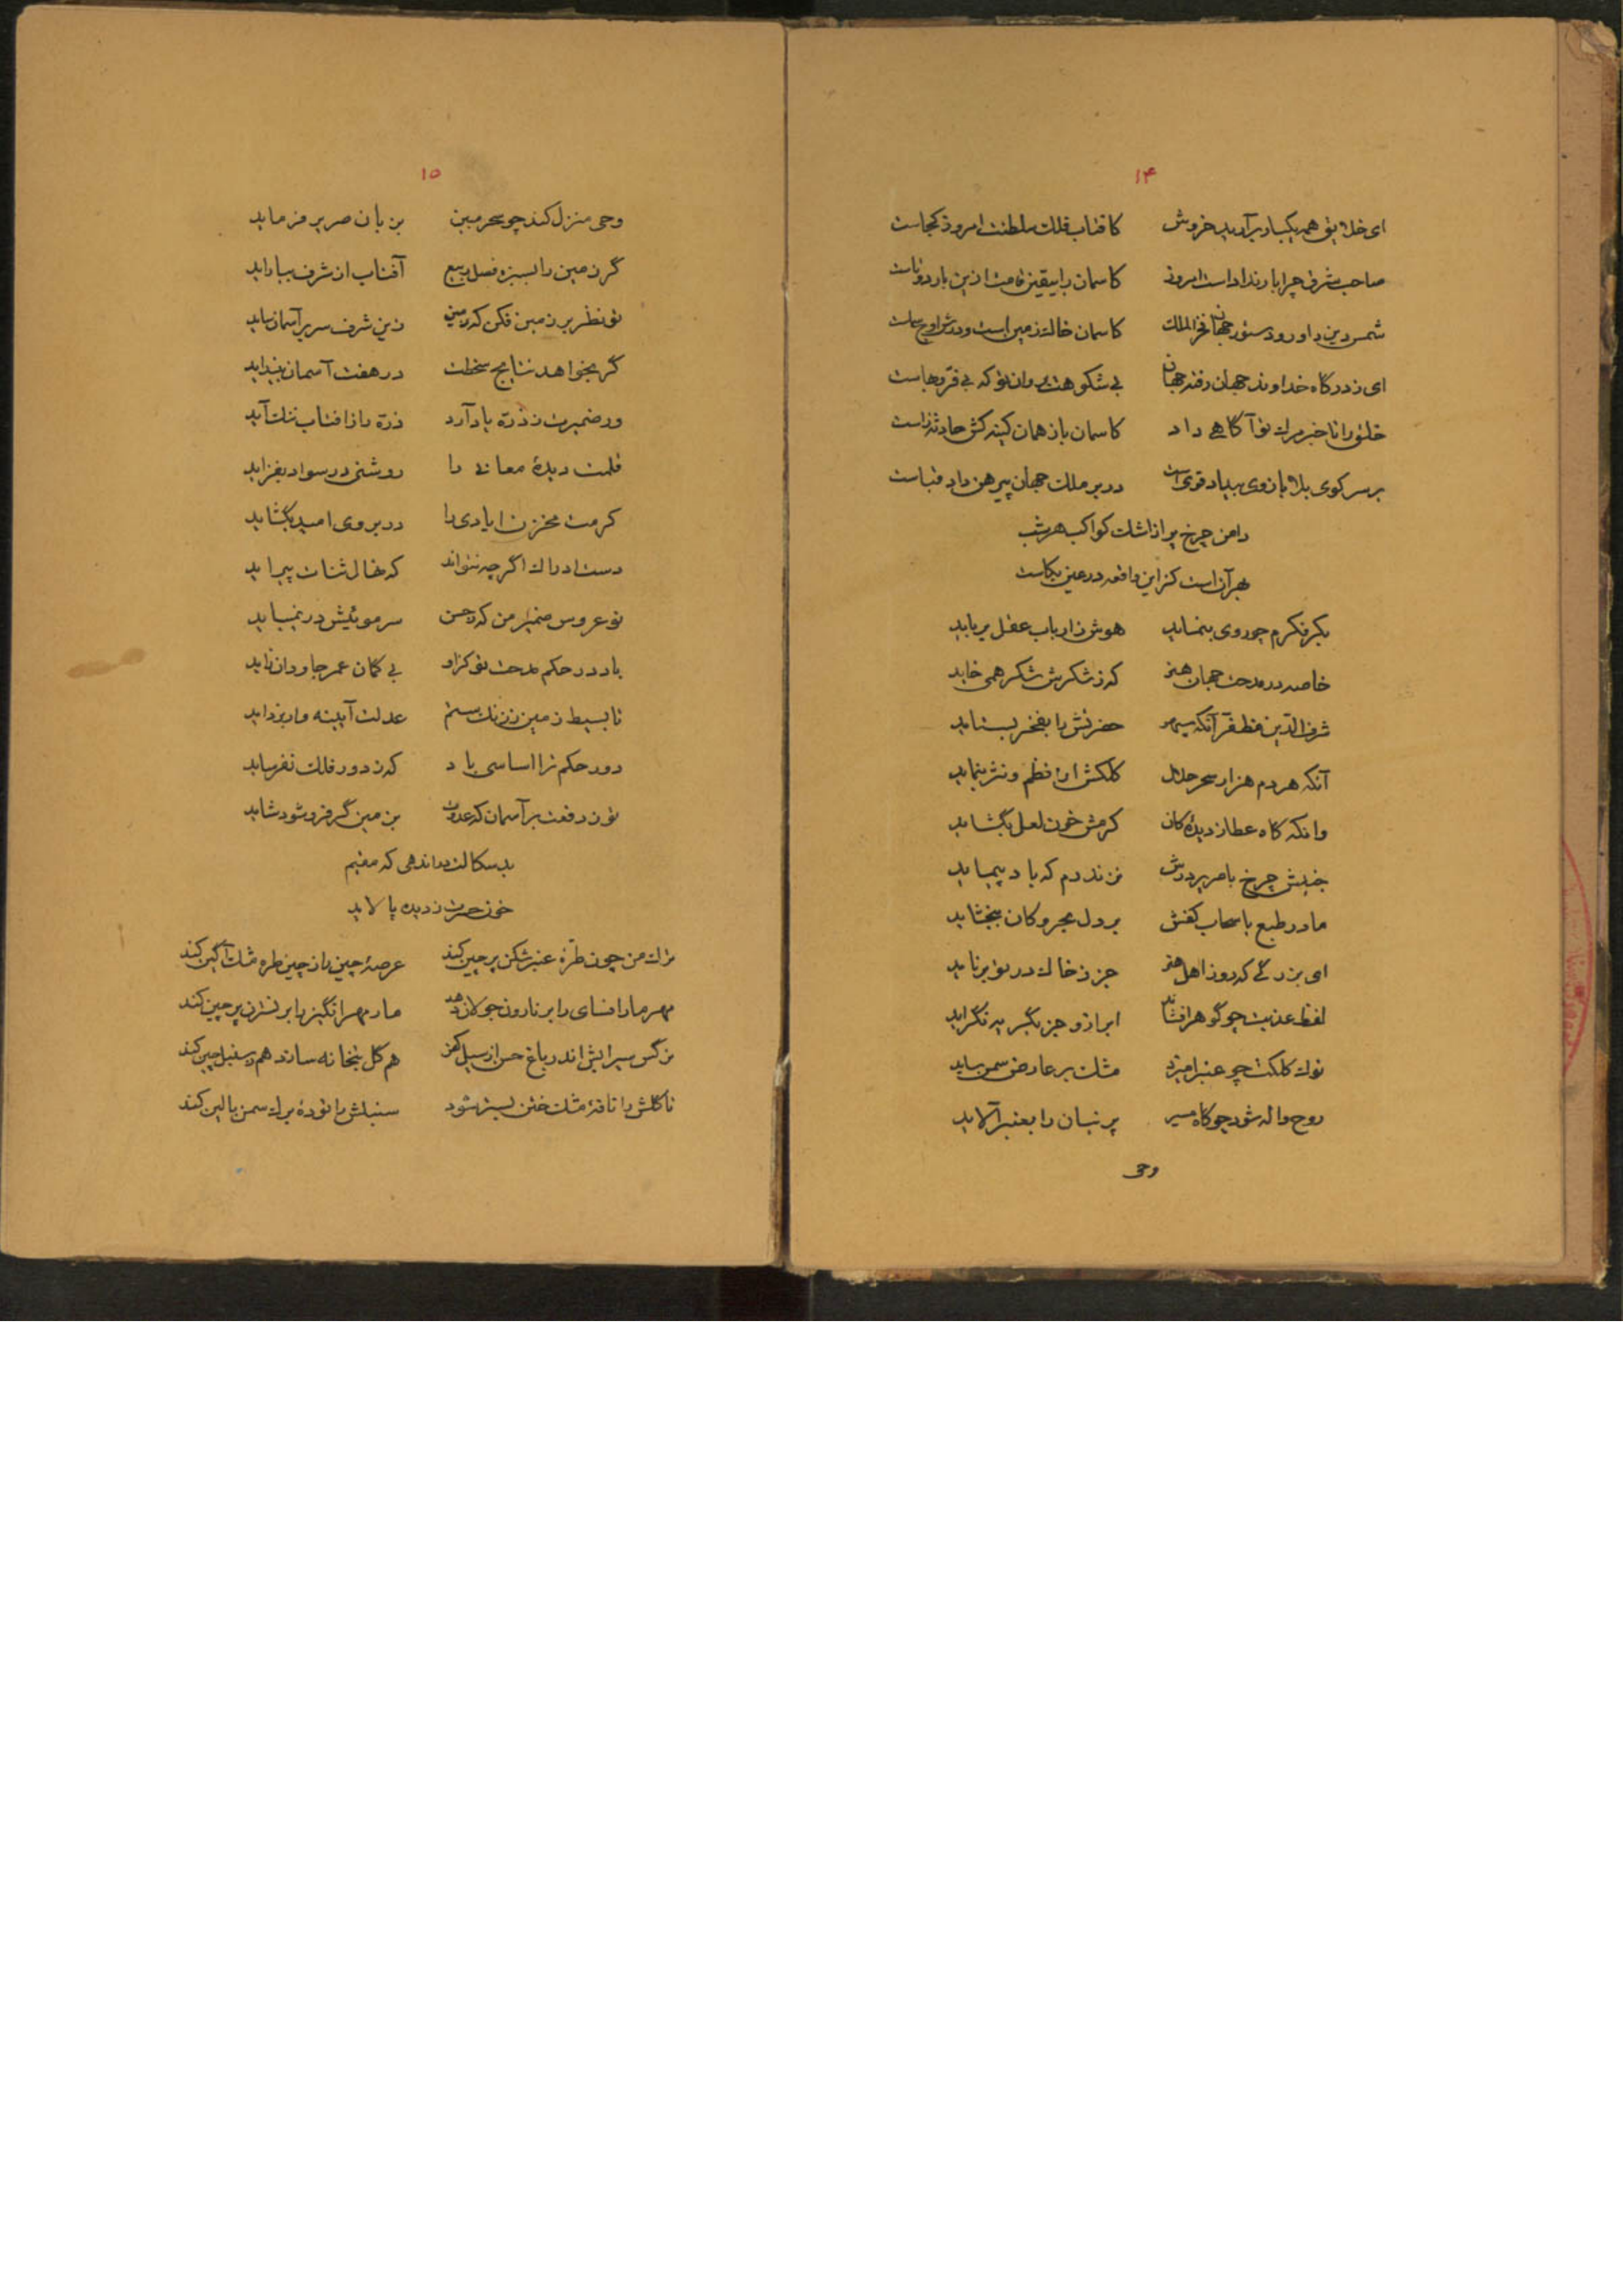 ۱۴
ای خلایق همه یکبار برآرید خروش کافتاب فلک سلطنت امروز کجاست
صاحب شرق چرا بار نداداست امروز کاسمان را بیقین قامت ازین بار دوتاست
شمس دین داور و دستور جهان فخر الملک کاسمان خاک زمین است و درش اوج سماست
ای ز درگاه خداوند جهان رفته جهان بی شکوهت بروان تو که بی فرّ و بهاست
خلق را تا خبر مرگ تو آگاهی داد کاسمان باز همان کینه کش حادثه زاست
بر سر کوی بلا بازوی بیداد قوی است در بر ملک جهان پیرهن داد قباست
دامن چرخ پر از اشک کواکب هر شب
بهر آن است کزاین واقعه در عین بکاست
بکر فکرم چو روی بنماید هوش ز ارباب عقل برباید
خاصه در مدحت جهان هنر که ز شکرش شکر همی خاید
شرف الدین مظفر آنکه سپهر حضرتش را بفخر بستاید
آنکه هر دم هزار سحر حلال کلکش از نظم و نثر بنماید
وانکه گاه عطا ز دیدهٔ کان کرمش خون لعل بگشاید
جنبش چرخ با سرپر درش نزند دم که باد پیماید
مادر طبع با سحاب کفش بر دل بحر و کان ببخشاید
ای بزرگی که روز اهل هنر جز ز خاک در تو برناید
لفظ عذبت چو گوهر افشاند ابر ازو جز بگریه نگراید
نوک کلکت چو عنبر آمیزد مشک بر عارض سمن ساید
روح واله شود چو گاه مسیر پرنیان را بعنبر آلاید
وحی
۱۵
وحی منزل کند چو سحر مبین بزبان صریر فرماید
گر زمین را بسبزه فصل ربیع آفتاب از شرف بیاراید
تو نظر بر زمین فکن که زمین زین شرف سر بر آسمان ساید
گر بخواهد نتایج سخطت در هفت آسمان بینداید
ور ضمیرت ز ذره یاد آرد ذره را ز افتاب ننگ آید
قلمت دیدهٔ معانی را روشنی در سواد بفزاید
کرمت مخزن ایادی را در بروی امید بگشاید
دست ادراک اگر چه نتواند که نهال ثنات پیراید
نوعروس ضمیر من که ز حسن سر موئیش در نمیباید
باد در حکم مدحت تو کزاو بی گمان عمر جاودان زاید
تا بسیط زمین ز زنگ ستم عدلت آیینه وار بزداید
دور حکم ترا اساسی باد که ز دور فلک نفرساید
تو ز رفعت بر آسمان که عدوت بزمین گر فرو شود شاید
بدسگالت در اندهی که مقیم
خون حسرت ز دیده پالاید
ترک من چون طرهٔ عنبرشکن پرچین کند عرصهٔ چین را ز چین طره مشک آگین کند
مهر مار افسای را بر نارون جولان دهد مار مهر انگیز را بر نسترن پرچین کند
نرگس سیرابش اندر باغ حسن از سبیل کفر هم گل بتخانه سازد هم ز سنبل چین کند
تا گلش را نافهٔ مشک ختن بستر شود سنبلش را تودهٔ برگ سمن بالین کند